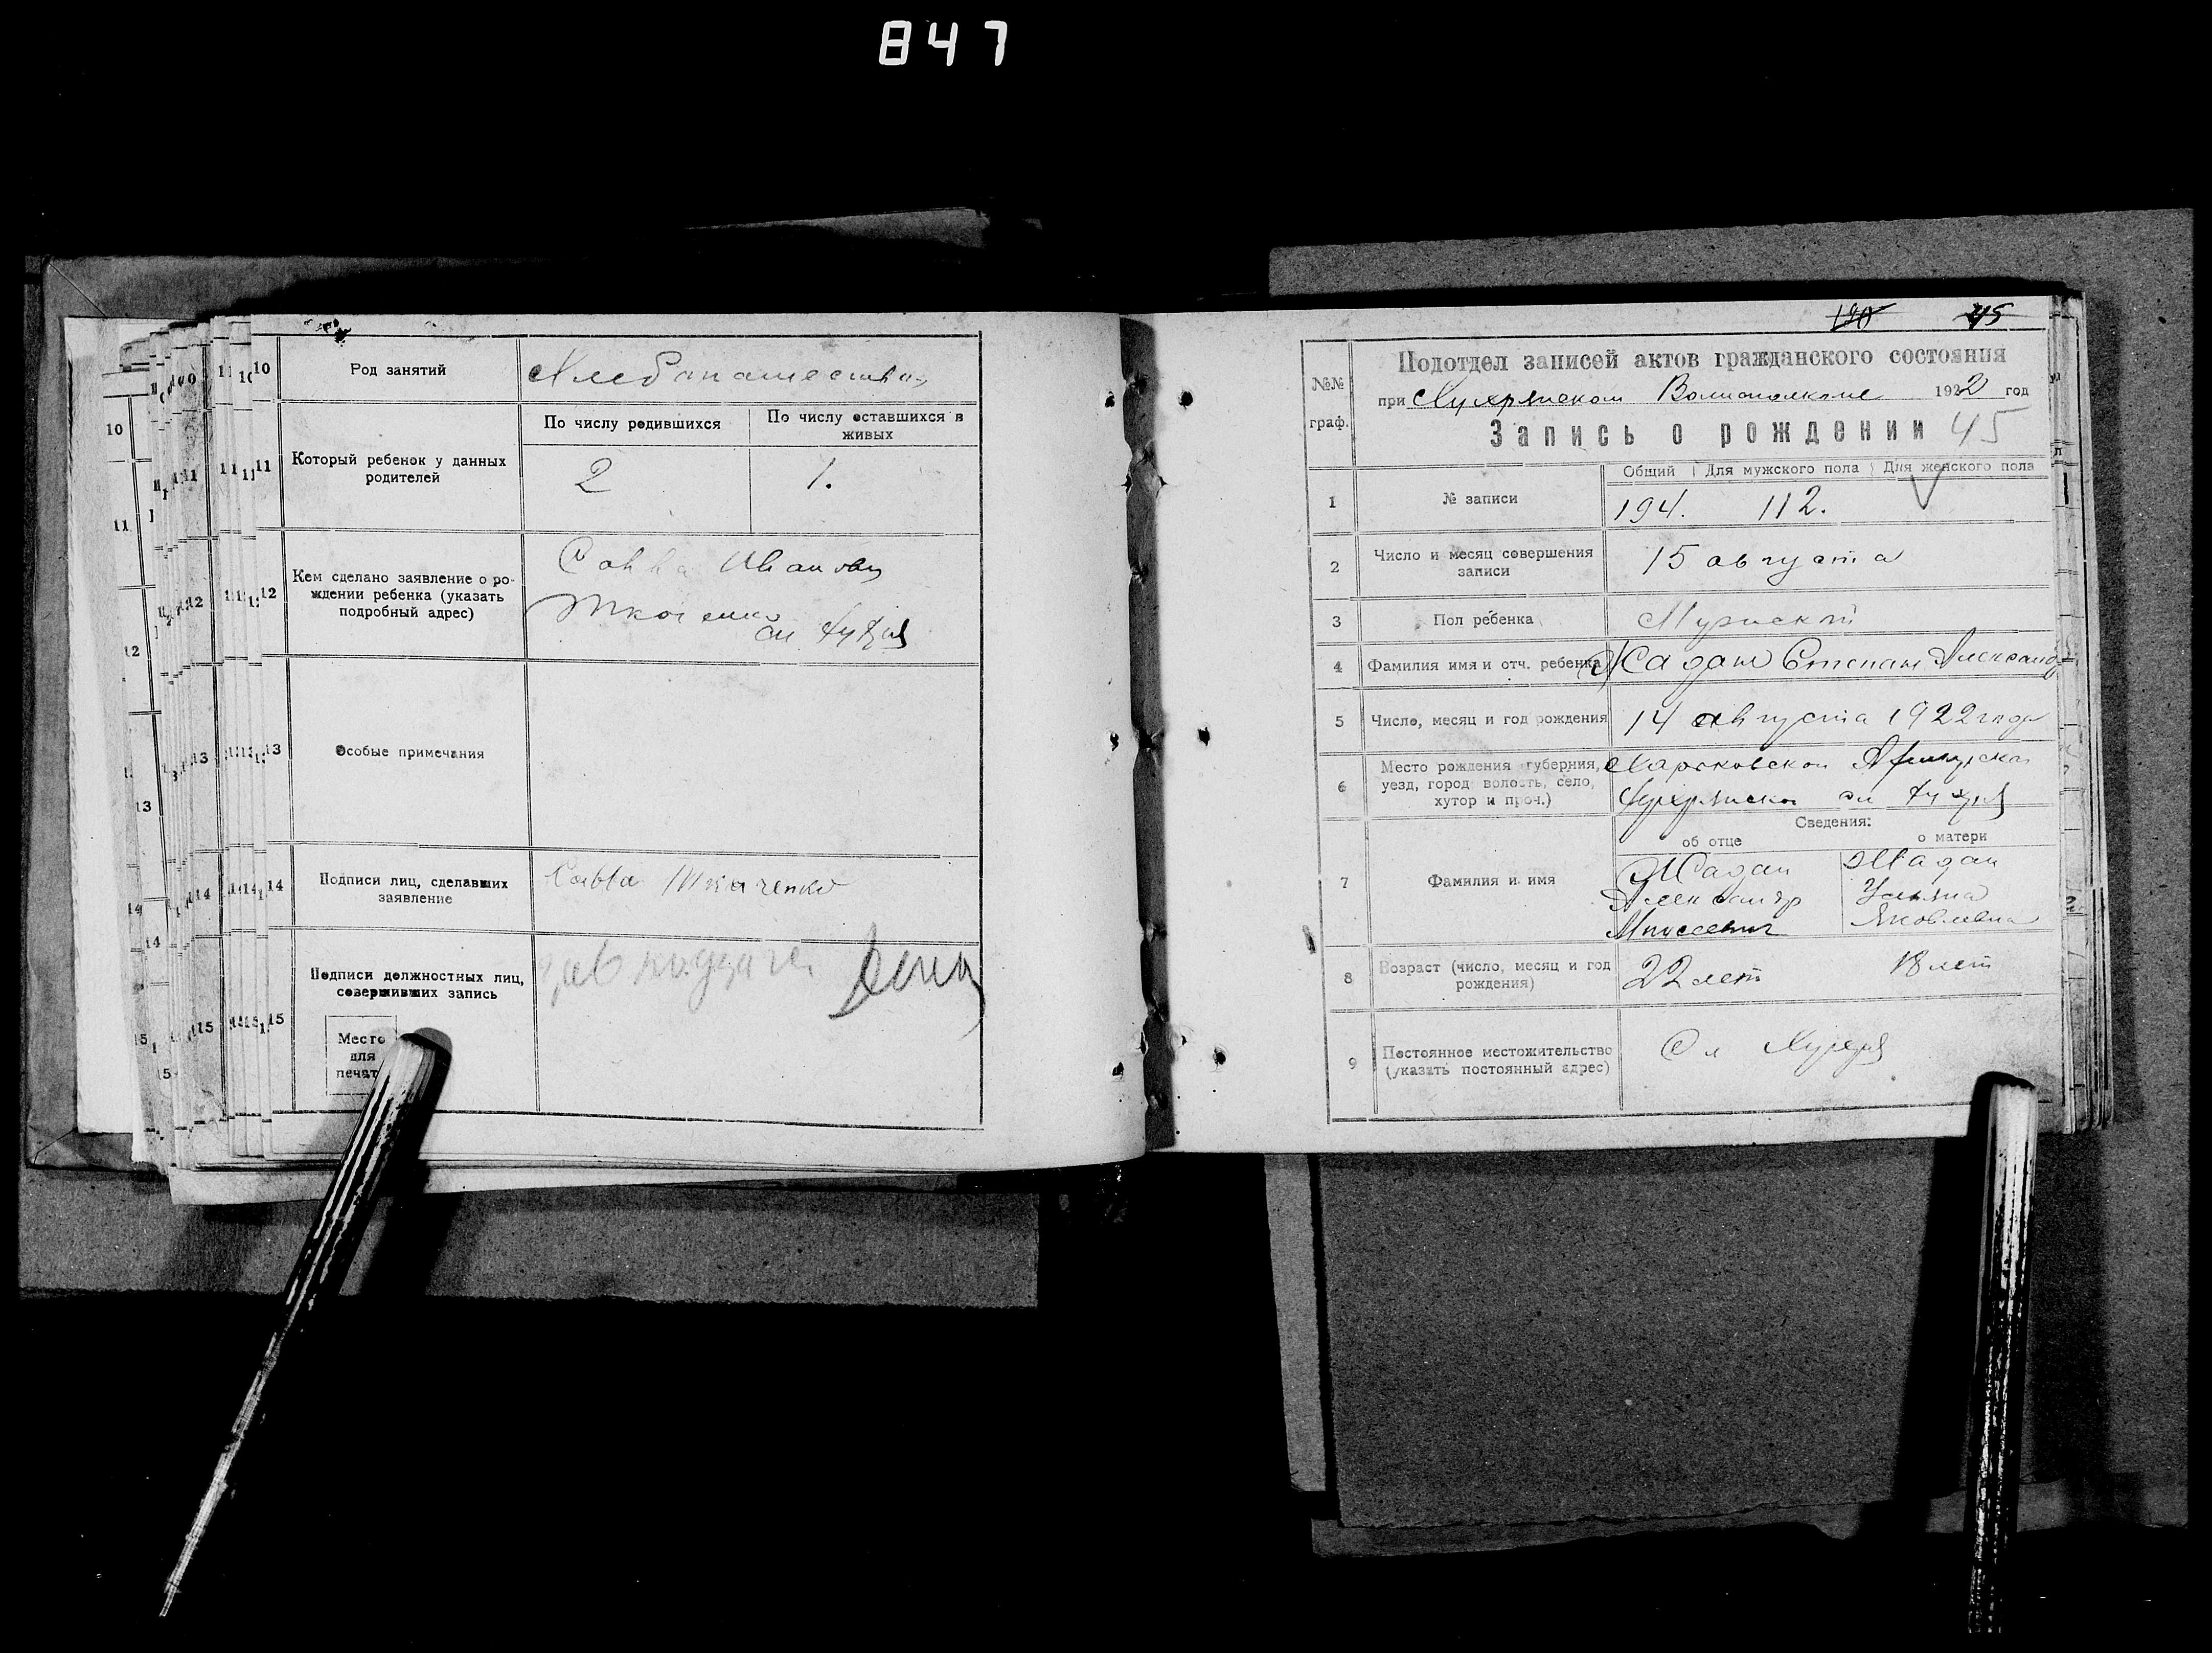 847
10
Род занятий
По числу родившихся
По числу оставшихся в
живых
11
Который ребенок у данных
родителей
2
1.
12
Кем сделано заявление о ро-
ждении ребенка (указать
подробный адрес)
Савва Иванович
Ткаченко
13
Особые примечания
14
Подписи лиц, сделавших
заявление
Савва Ткаченко
15
Подписи должностных лиц,
совершивших запись
Место
для
печат
190 45
№№
граф.
Подотдел записей актов гражданского состояния
при 1922 год
Запись о рождении 45
Общий Для мужского пола Для женского пола
1
№ записи
194. 112.
2
Число и месяц совершения
записи
15 августа
3
Пол ребенка
Мужской
4
Фамилия имя и отч. ребенка
Жадан Степан Александр
5
Число, месяц и год рождения
14 августа 1922 года
6
Место рождения губерния,
уезд, город волость, село,
хутор и проч.)
Харьковской
Сведения:
об отце
о матери
7
Фамилия и имя
Жадан
Александр
Моисеевич
Жадан
Ульяна
Яковлевна
8
Возраст (число, месяц и год
рождения)
22 лет
18 лет
9
Постоянное местожительство
(указать постоянный адрес)